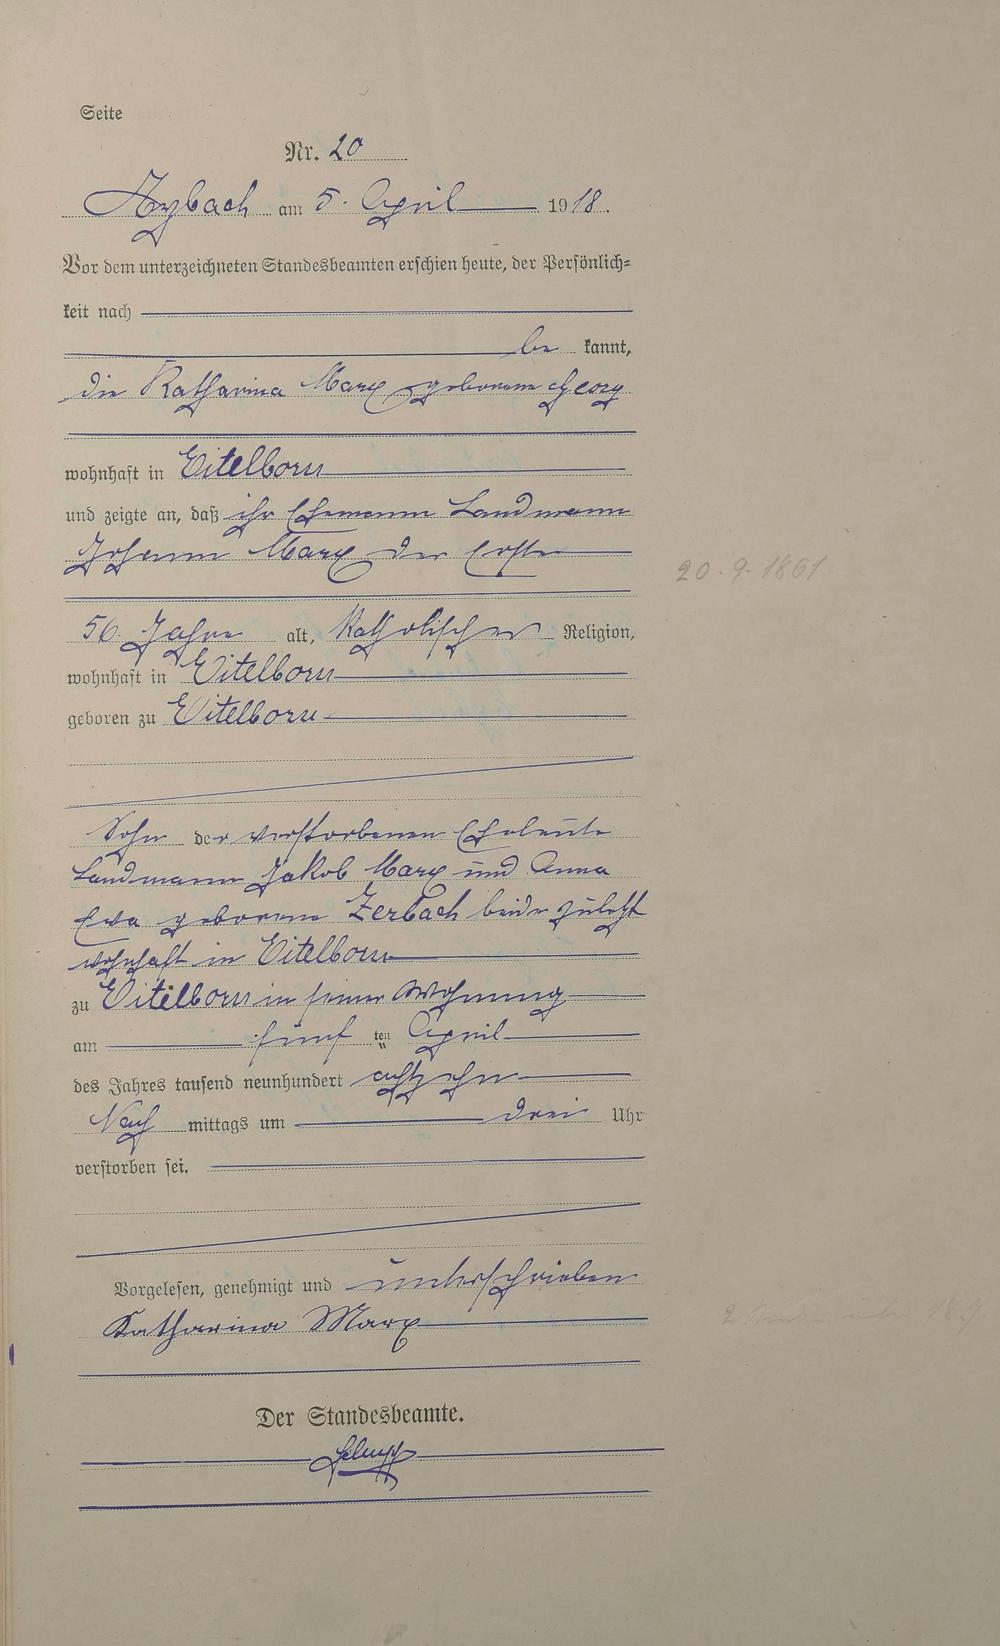 Seite
Nr. 20
Arzbach am 5. April 1918.
Vor dem unterzeichneten Standesbeamten erschien heute, der Persönlich=
keit nach
be kannt,
die Katharina Marx geborene Georg
wohnhaft in Eitelborn
und zeigte an, daß ihr Ehemann Landmann
Johann Marx der Erste
56 Jahre alt, katholischer Religion,
wohnhaft in Eitelborn
geboren zu Eitelborn
Sohn der verstorbenen Eheleute
Landmann Jakob Marx und Anna
Eva geborene Zerbach beide zuletzt
wohnhaft in Eitelborn
zu Eitelborn in seiner Wohnung
am fünf ten April
des Jahres tausend neunhundert achtzehn
Nach mittags um drei Uhr
verstorben sei.
Vorgelesen, genehmigt und unterschrieben
Katharina Marx
Der Standesbeamte.
20.9.1861